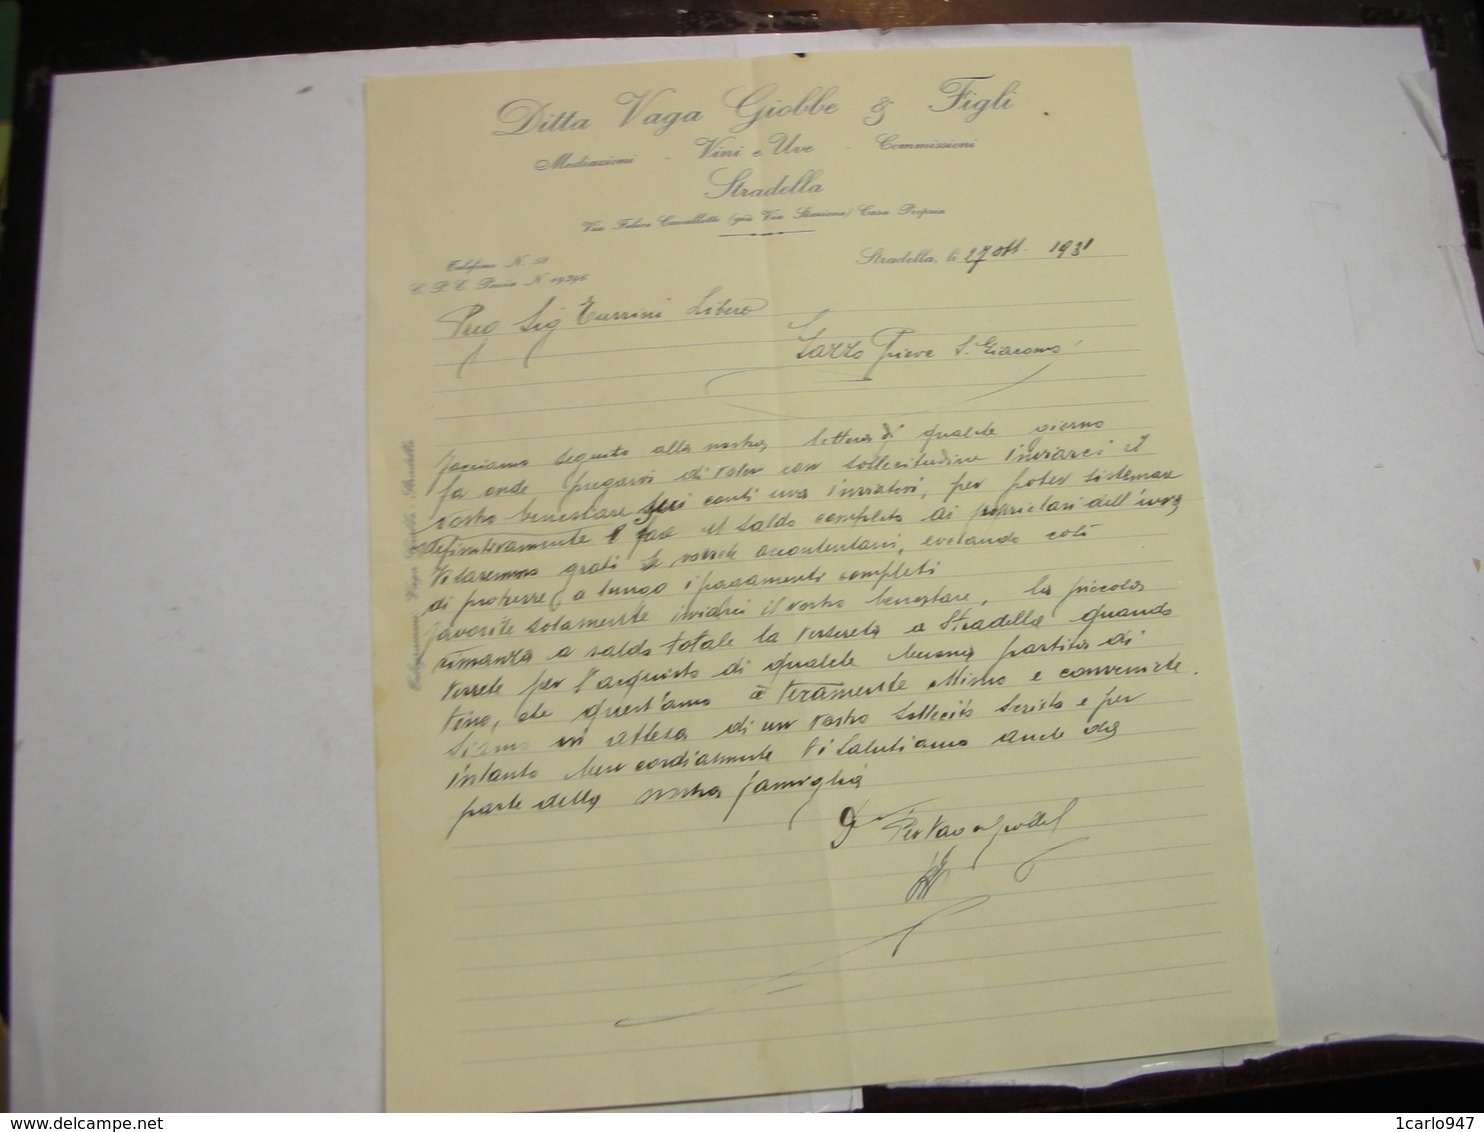 Ditta Vaga Giobbe & Figli
Mediazioni - Vini e Uve - Commissioni
Stradella
Via Felice Cavallotti (già Via Stazione) Casa Propria
Telefono N. 58
C. P. C. Pavia N.
Stradella, li 27 ott. 1931
Preg Sig Libero
Pieve S. Giacomo
facciamo seguito alla nostra lettera di qualche giorno
fa onde pregarvi di voler con sollecitudine inviarci il
vostro benestare sui conti uva inviatovi, per poter sistemare
definitivamente e fare il saldo completo ai proprietari dell'uva
Vi saremmo grati se vorrete accontentarci, evitando così
di protrarre a lungo i pagamenti completi
favorite solamente inviarci il vostro benestare, la piccola
rimanza a saldo totale la verserete a Stradella quando
verrete per l'acquisto di qualche buona partita di
vino, che quest'anno è veramente ottimo e conveniente.
Siamo in attesa di un vostro sollecito scritto e per
intanto ben cordialmente Vi salutiamo anche da
parte della nostra famiglia
1carlo947